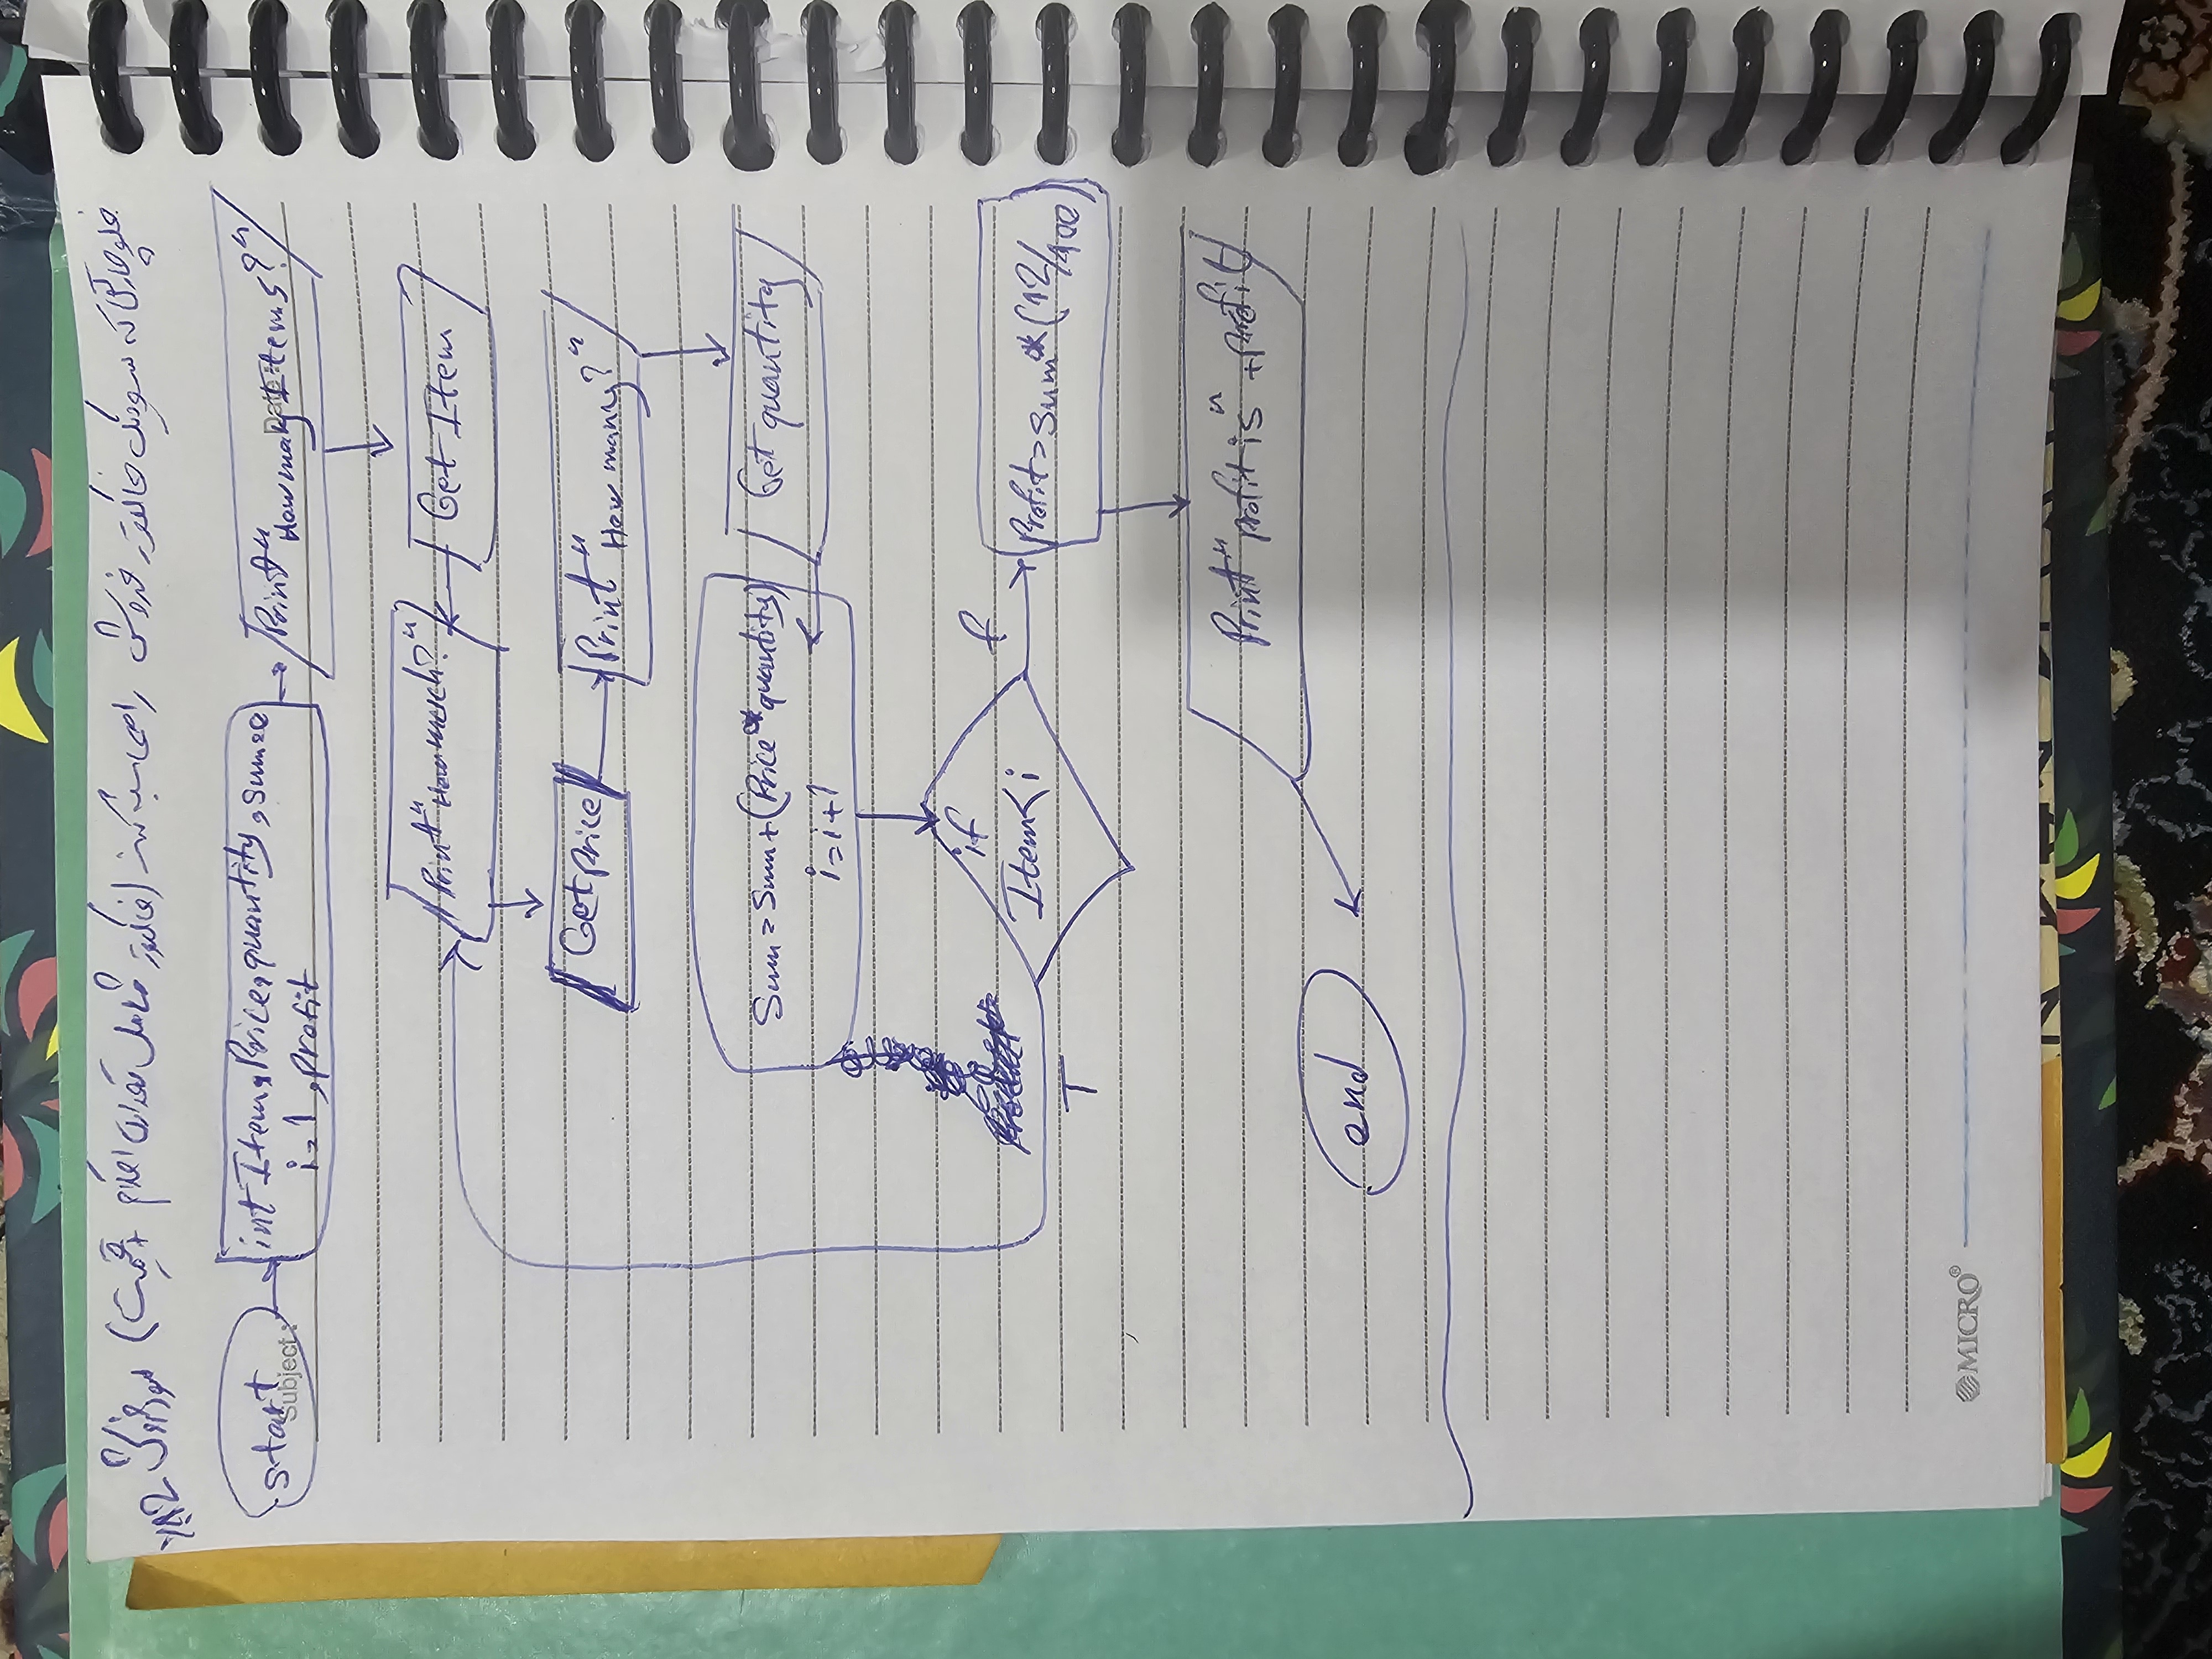 فلوچارتی که سود یک فاکتور فروش را محاسبه کند (فاکتور شامل تعداد اقلام + قیمت) سود فروش %12
start
Subject :
int Item, Price, quantity, Sum=0
i=1, profit
Print "How many Items?"
Date :
Print "How much?"
Get Item
Get price
Print "How many?"
Sum=Sum+(Price*quantity)
i=i+1
Get quantity
if
Item<i
f
T
Profit=Sum*(12/100)
Print "profit is" +profit
end
MICRO®